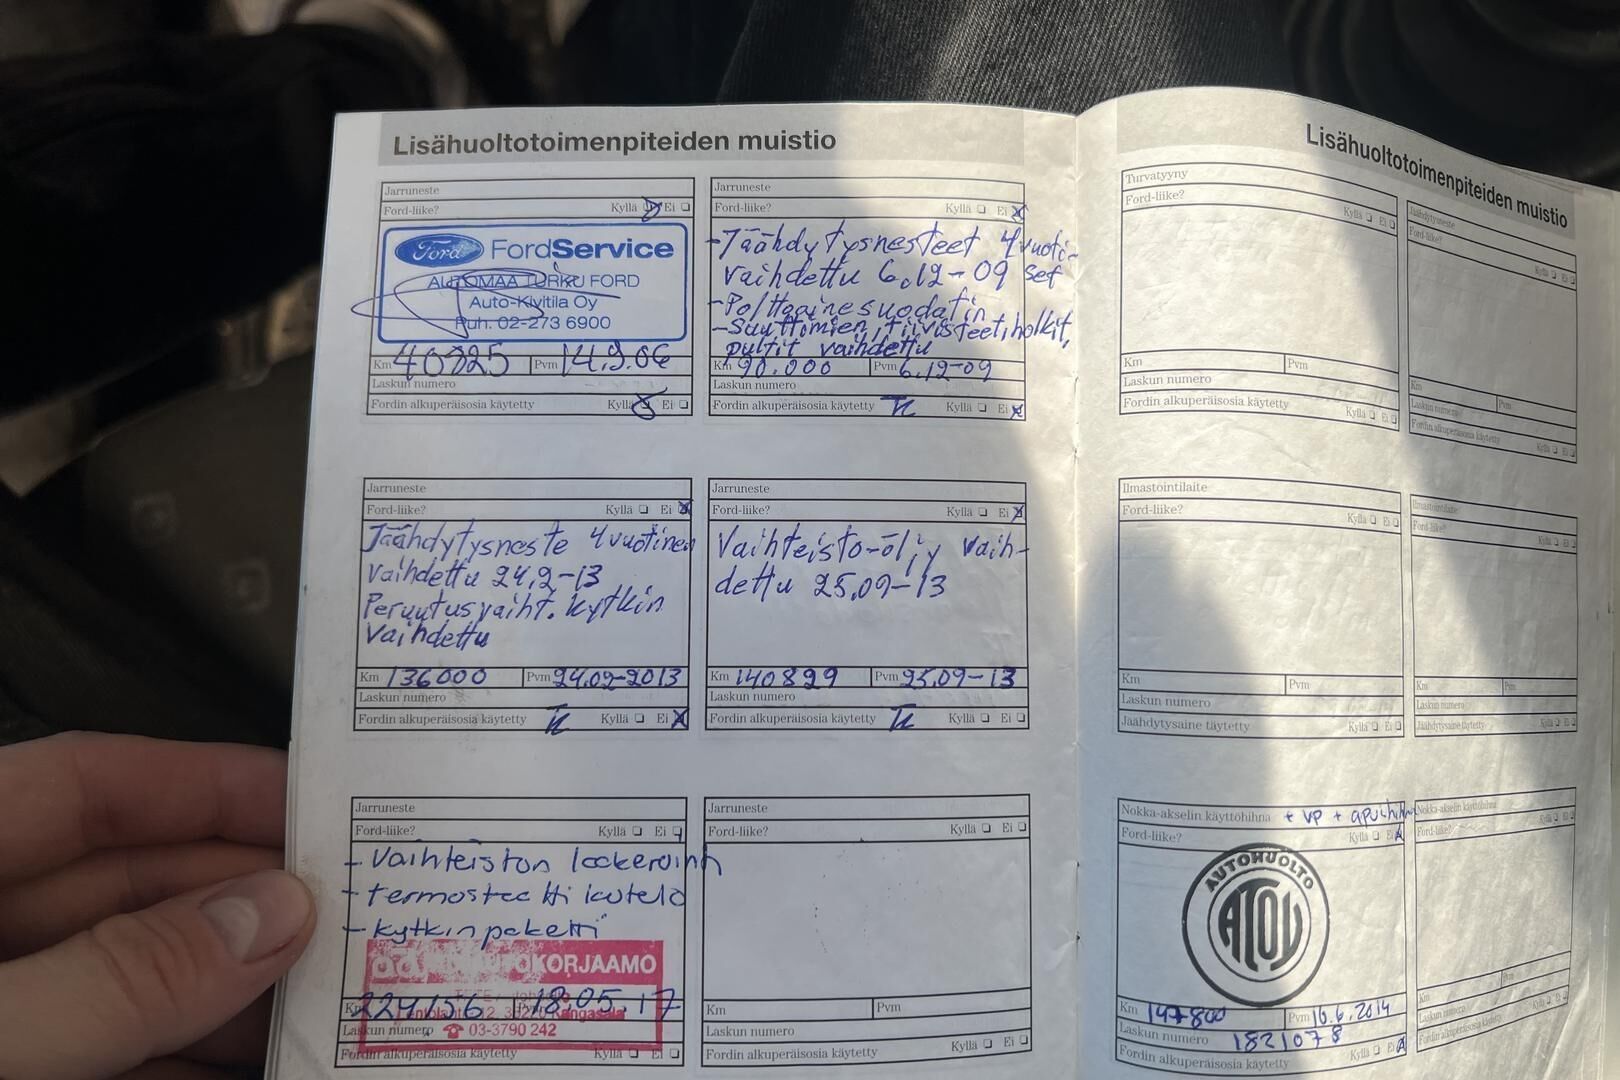 Lisähuoltotoimenpiteiden muistio
Jarruneste
Ford-liike? Kyllä Ei
Ford FordService
AUTOMAA TURKU FORD
Auto-Kivitila Oy
Puh. 02-273 6900
Km 40825 Pvm 14.9.06
Laskun numero
Fordin alkuperäisosia käytetty Kyllä Ei
Jarruneste
Ford-liike? Kyllä Ei
-Jäähdytysnesteet 4vuoti-
vaihdettu 6.12-09 set
-Polttoainesuodatin
-Suuttimien, tiivisteet, holkit,
pultit vaihdettu
Km 90.000 Pvm 6.12-09
Laskun numero
Fordin alkuperäisosia käytetty Kyllä Ei
Jarruneste
Ford-liike? Kyllä Ei
Jäähdytysneste 4vuotinen
vaihdettu 24.2-13
Peruutusvaiht. kytkin
vaihdettu
Km 136000 Pvm 24.02-2013
Laskun numero
Fordin alkuperäisosia käytetty Kyllä Ei
Jarruneste
Ford-liike? Kyllä Ei
Vaihteisto-öljy vaih-
dettu 25.09-13
Km 140829 Pvm 25.09-13
Laskun numero
Fordin alkuperäisosia käytetty Kyllä Ei
Jarruneste
Ford-liike? Kyllä Ei
- vaihteiston
- termostaatti kotelo
- kytkinpaketti
OKORJAAMO
Km 224156 18.05.17
Laskun numero ☎ 03-3790 242
Fordin alkuperäisosia käytetty Kyllä Ei
Jarruneste
Ford-liike? Kyllä Ei
Km Pvm
Laskun numero
Fordin alkuperäisosia käytetty Kyllä Ei
Lisähuoltotoimenpiteiden muistio
Turvatyyny
Ford-liike? Kyllä Ei
Km Pvm
Laskun numero
Fordin alkuperäisosia käytetty Kyllä Ei
Jäähdytysneste
Ford-liike? Kyllä Ei
Km Pvm
Laskun numero
Fordin alkuperäisosia käytetty Kyllä Ei
Ilmastointilaite
Ford-liike? Kyllä Ei
Km Pvm
Laskun numero
Jäähdytysaine täytetty Kyllä Ei
Ilmastointilaite
Ford-liike? Kyllä Ei
Km Pvm
Laskun numero
Jäähdytysaine täytetty Kyllä Ei
Nokka-akselin käyttöhihna + vp + apuhihna
Ford-liike? Kyllä Ei
AUTOHUOLTO
ATOY
Km 147800 Pvm 10.6.2014
Laskun numero 1821078
Fordin alkuperäisosia käytetty Kyllä Ei
Nokka-akselin käyttöhihna
Ford-liike? Kyllä Ei
Km Pvm
Laskun numero
Fordin alkuperäisosia käytetty Kyllä Ei